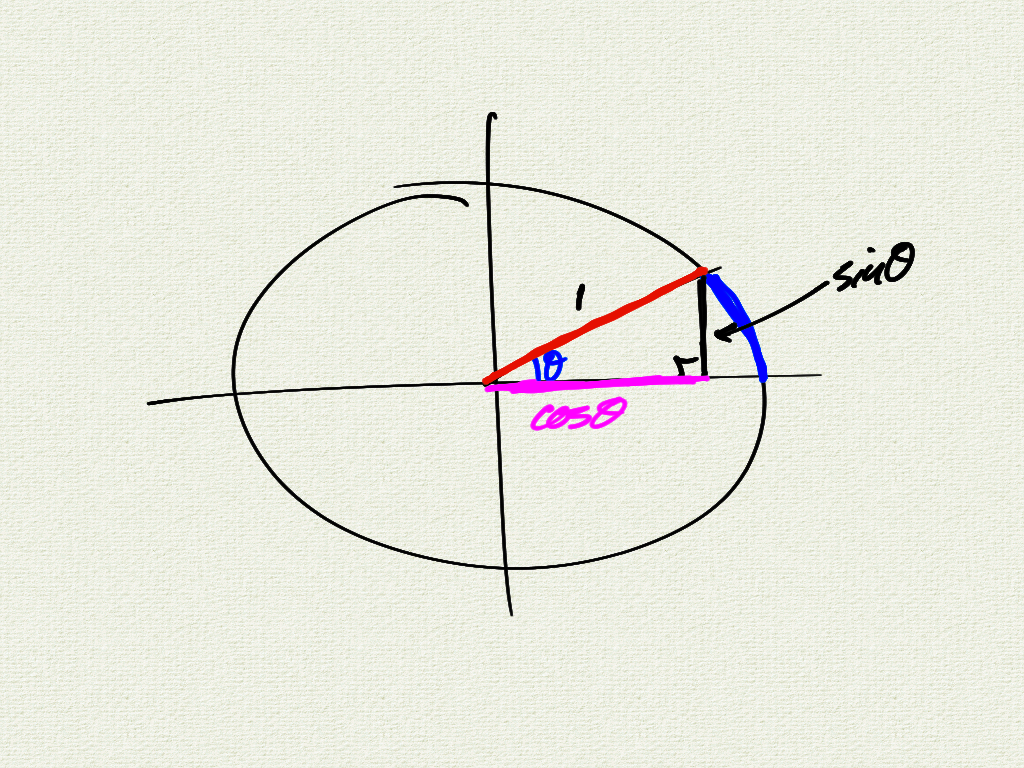 sinθ
1
θ
cosθ